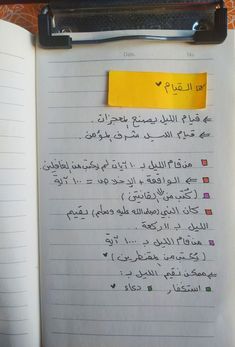 Date: No:
القيام ♥
⇐ قيام الليل يصنع المعجزات .
⇐ قيام الليل شرف المؤمن .
من قام الليل ب ١٠ آيات لم يكتب من الغافلين
⇐ الواقعة + الإخلاص = ١٠٠ آية
( كُتب من القانتين )
كان النبي (صلى الله عليه وسلم) يقيم
الليل ب ١١ ركعة .
من قام الليل ب ١٠٠٠ آية
( يُكتب من المقنطرين ) ♥
⇐ ممكن نقيم الليل ب :
استغفار دعاء ♥